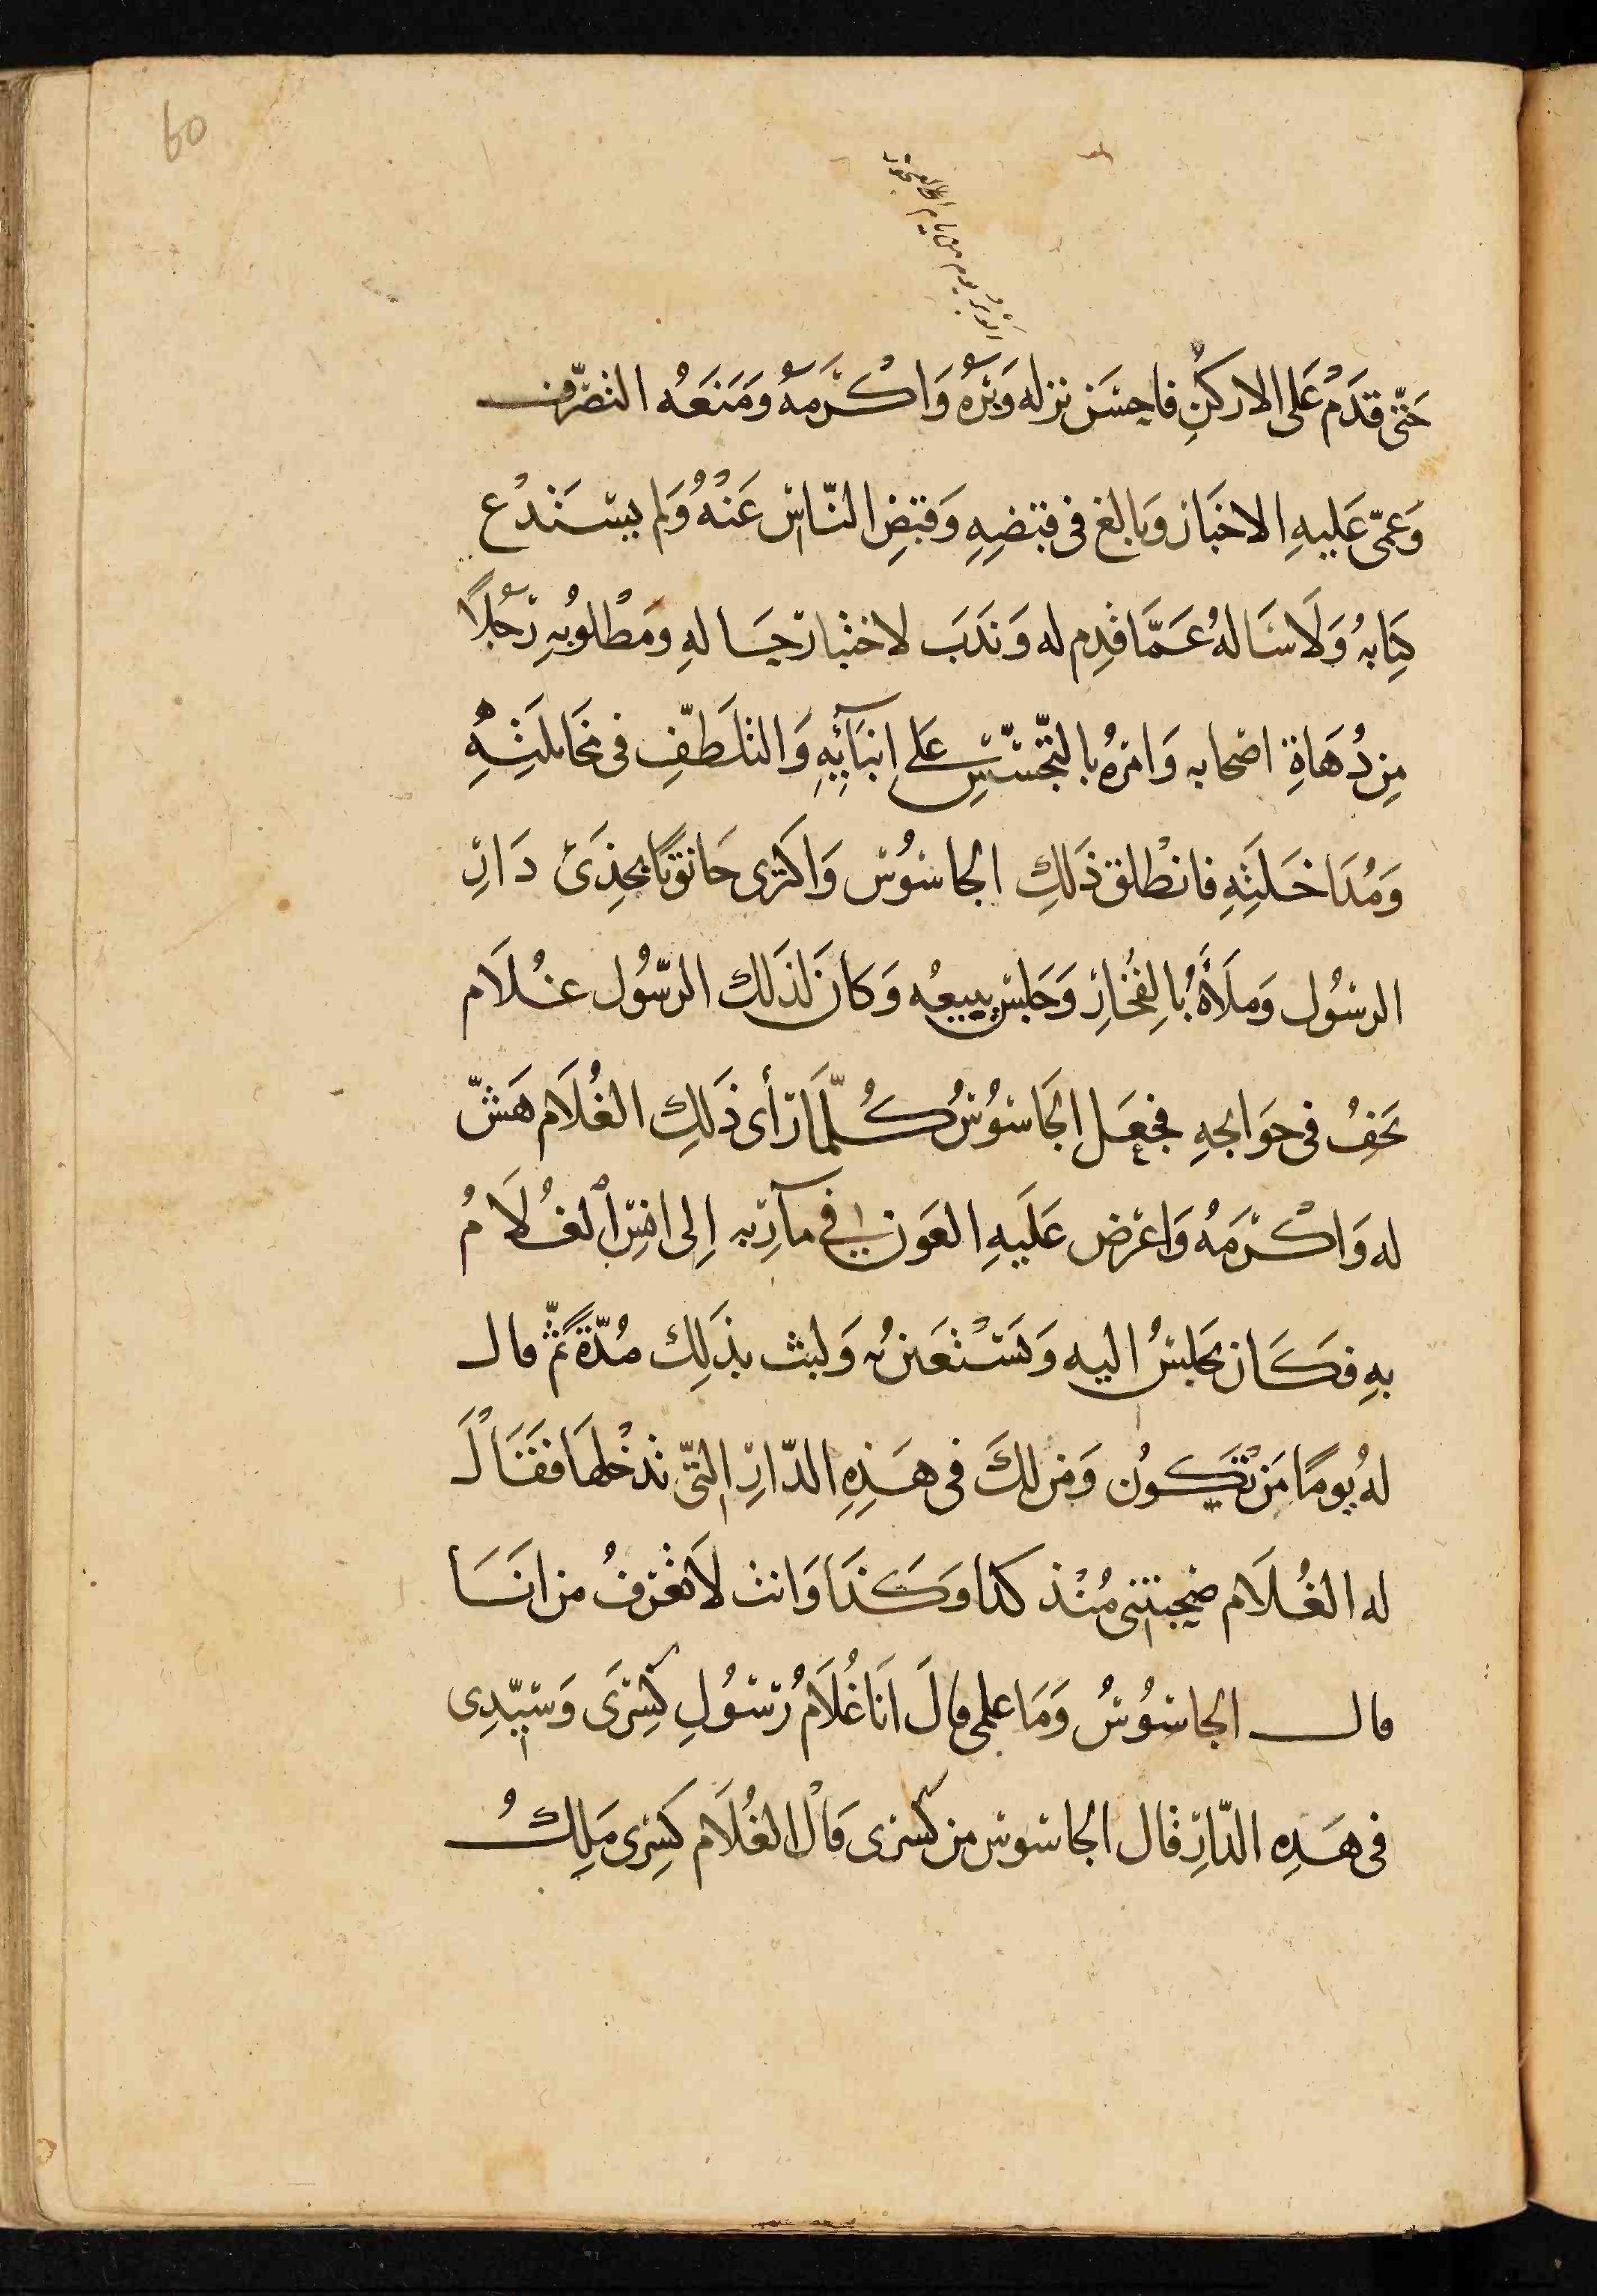 60
حَتّى قدَمْ عَلى الاركنِ فاحسَن نزله وَبَرّهُ وَاكْرَمَهُ وَمَنَعَهُ التصَرّف
وَعَمّى عَليهِ الاخبَار وَبالغ فى قبضِهِ وَقبَضِ النّاس عَنْهُ وَلم يسَتَدْعِ
كِتابهُ وَلَا سَالهُ عَمَّا قدِم له وَنَدَبَ لاختبار حَالهِ ومَطْلوُبهِ رَجُلًا
مِن دُهَاةِ اصْحابه وَامَرهُ بالتّجَسّسِ عَلى اِنبَآئِهِ وَالتلَطّفِ فى مخَاتلتِهِ
وَمُدَاخَلتِهِ فانطْلق ذَلِكِ الجاسُوس وَاكترى حَانوُتًا بحِذَى دَارِ
الرسُول وَملَأَهُ بالِفُخارِ وَجَلسَ يبيعُه وَكانَ لذَلك الرّسُول غُلَام
يَخفُ فى حوَايجهِ فجعَل اِلجَاسُوسُ كُلّمَا رَأى ذَلِكِ الغُلَام هَشّ
له وَاكْرَمَهُ وَاعْرَض عَلَيهِ العَون فى مآرِبه اِلى انسِ اَلغُلَامُ
بهِ فكَان يجلسُ اليه وَيَسْتَعَن بُه وَلبث بذَلِك مُدّةً ثمّ قال
لهُ يومًا مَن تَكوُن وَمَن لكَ فى هَذِهِ الدّارِ التّى تدْخُلهَا فقَالْ
له الغُلَام صَحِبتنى مُنْذ كذا وَكذَا وَانت لَا تعْرفُ من انَا
قال الجاسُوسُ وَمَا علمى قالَ انَا غُلَامُ رَسُولِ كِسْرَى وَسَيّدِى
فى هَذِهِ الدّارِ قال الجاسُوس من كسرى قال الغُلَام كِسرى مَلِكُ